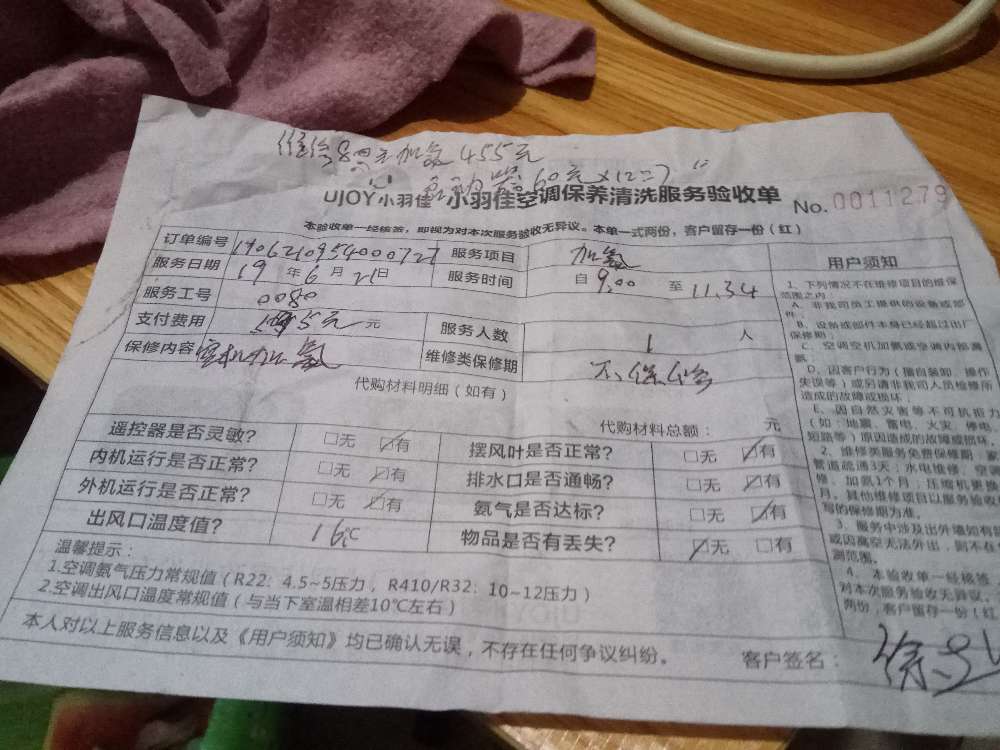 加氨 455元
60元
UJOY小羽佳 小羽佳空调保养清洗服务验收单 No. 0011279
本验收单一经核签，即视为对本次服务验收无异议。本单一式两份，客户留存一份（红）
订单编号 服务项目 加氨 用户须知
服务日期 19年6月21日 服务时间 自9:00至11:34
服务工号 0080
支付费用 元 服务人数 1 人
保修内容 加氨 维修类保修期 不保修
代购材料明细（如有）
代购材料总额： 元
遥控器是否灵敏？ □无 ☑有 摆风叶是否正常？ □无 ☑有
内机运行是否正常？ □无 ☑有 排水口是否通畅？ □无 ☑有
外机运行是否正常？ □无 ☑有 氨气是否达标？ □无 ☑有
出风口温度值？ 16℃ 物品是否有丢失？ ☑无 □有
温馨提示：
1.空调氨气压力常规值（R22：4.5~5压力，R410/R32：10~12压力）
2.空调出风口温度常规值（与当下室温相差10℃左右）
本人对以上服务信息以及《用户须知》均已确认无误，不存在任何争议纠纷。 客户签名： 徐
1、下列情况不在维修项目的维保
范围之内：
A、非我司员工提供的设备或部
件；
B、设备或部件本身已经超过出厂
保修期
C、空调空机加氨或空调内部漏
氨
D、因客户行为（擅自装卸、操作
失误等）或另请非我司人员检修所
造成的故障或损坏
E、因自然灾害等不可抗拒力
（如：地震、雷电、火灾、停电、
短路等）原因造成的故障或损坏。
2、维修类服务免费保修期：
管道疏通3天；水电维修、
加氨1个月；压缩机更换
月。其他维修项目以服务验收
写的保修期为准。
3、服务中涉及出外墙如有
或因高空无法外出，则不在
测范围。
4、本验收单一经核签
对本次服务验收无异议。
两份，客户留存一份（红